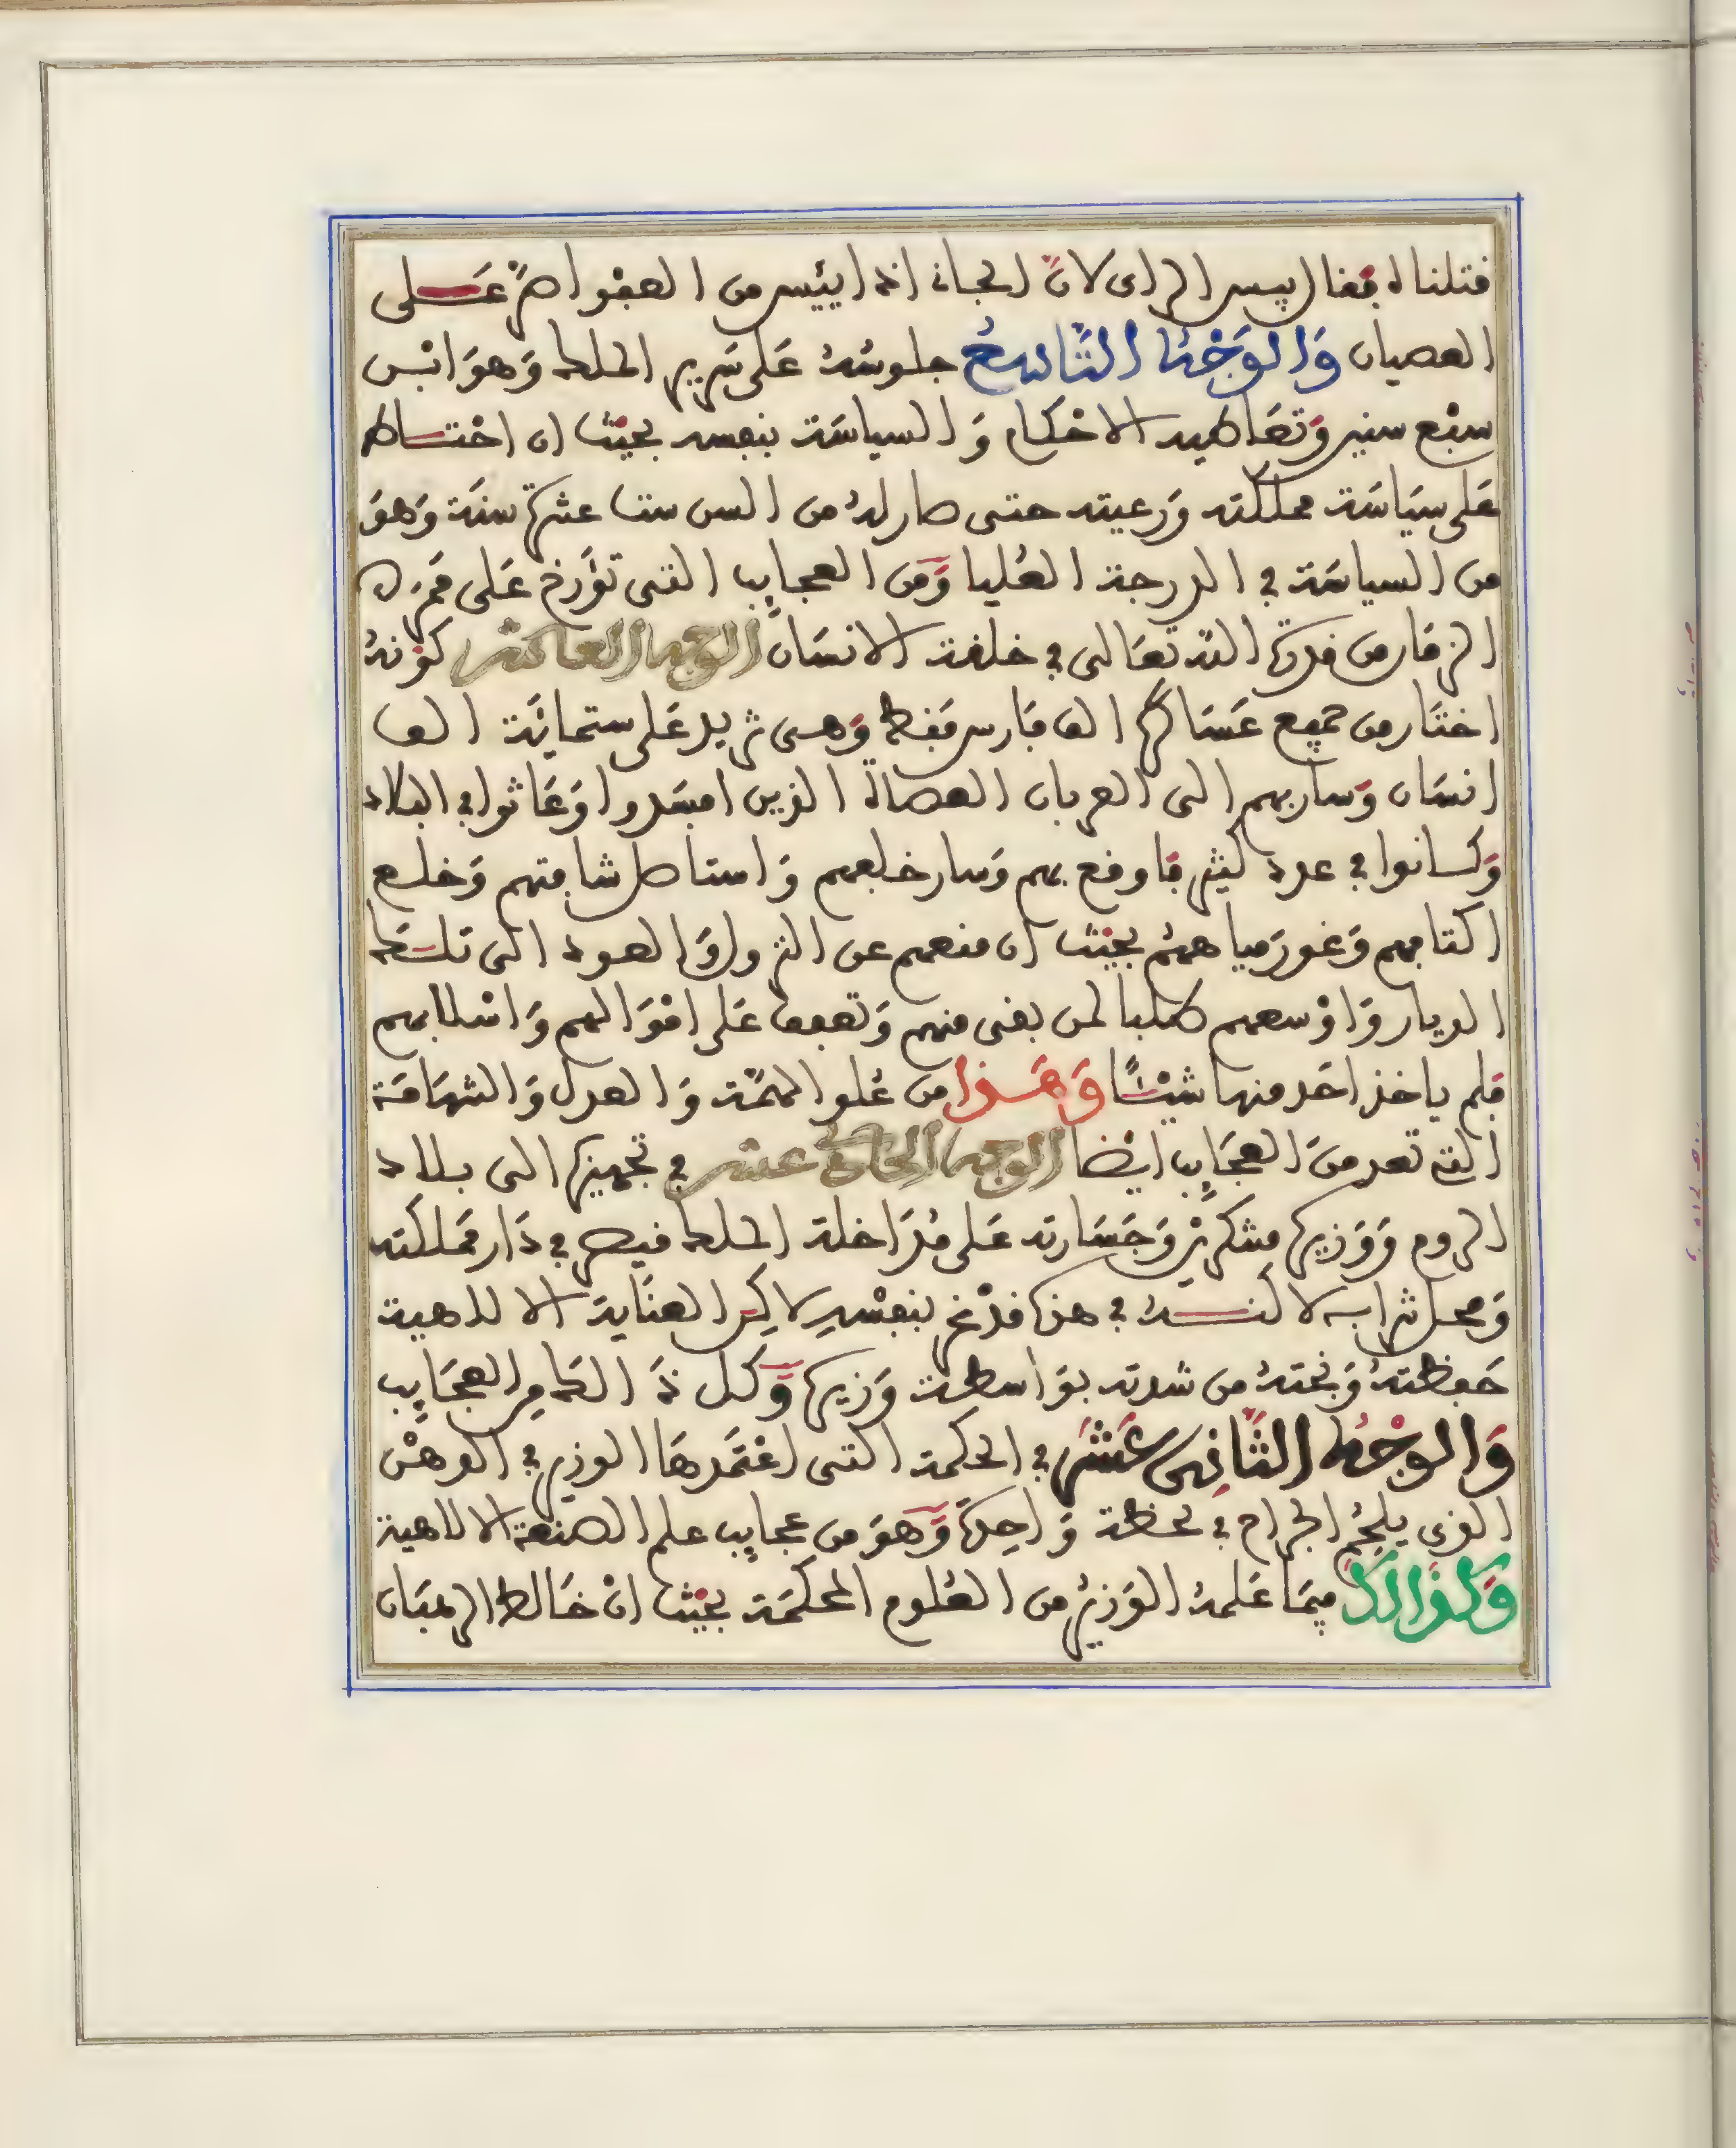 قتلناه فقال بيس الراى لانّ الجانى اذا اييس من العفو اصرّ على
العصيان وَالوَجْه التَّاسعُ جلوسُهُ عَلى سَرير الملك وَهوَ ابْن
سبْع سنين وَتعَاطيه الاحْكام وَالسياسَة بنفسه بحيْث ان احْتاط
عَلى سيَاسَة مملكته وَرعيته حتى صار لهُ من السن ستا عشرة سنَة وَهوَ
من السياسَة في الدرجة العُليا وَمن العجايب التى تؤرخ عَلى ممر
الزمَان من قدرة الله تعَالى في خلقة الانسَان الوجه العاشر كوْنهُ
اختَار من جميع عَسَاكره الف فَارس فقط وَهى تزيد عَلى ستماية الف
انسَان وَسار بهم الى العربان العصاة الذين افسَدوا وَعَاثوا في البلاد
وَكانوا في عدد كثير فاوقع بهم وَسار خلفهم وَاستاصل شافتهم وَخلع
اكتافهم وَغور ميا ههُم بحيْث ان منعهم عن النزول وَالعود الى تلك
الديار وَاوْسعهم طلبا لمن بقى منهم وَتعفف عَلى امْوَالهم وَاسْلابهم
فلم ياخذ احَد منها شيْئًا وَهَذا من عُلو الهمَّة وَالعدل وَالشهَامَة
التى تعد منَ العجَايب ايْضا الوجه الحادى عشر في تجهيزه الى بلاد
الروم وَوَزيره متنكريْن وَجَسَارته عَلى مُدَاخلة الملك قيصر في دَار مملكته
وَمحل شرابه لاكنهُ في هذا قدْ غر بنفسْهِ لاكِن العنَاية الالاهية
حَفظتهُ وَنجتهُ من شدته بوَاسطة وَزيره وَكل ذَالك مِن العجَايب
وَالوجْه الثَّانِى عَشَر في الحكمة التى اعْتمَدهَا الوزير في الدهْن
الذى يلحُم الجراح في لحظة وَاحِدة وَهوَ من عجايب علم الصنعة الالاهية
وَكذَالك فيمَا عَلمهُ الوَزير من العُلوم المحكمَة بحيْث انْ خَالط الرهبَان